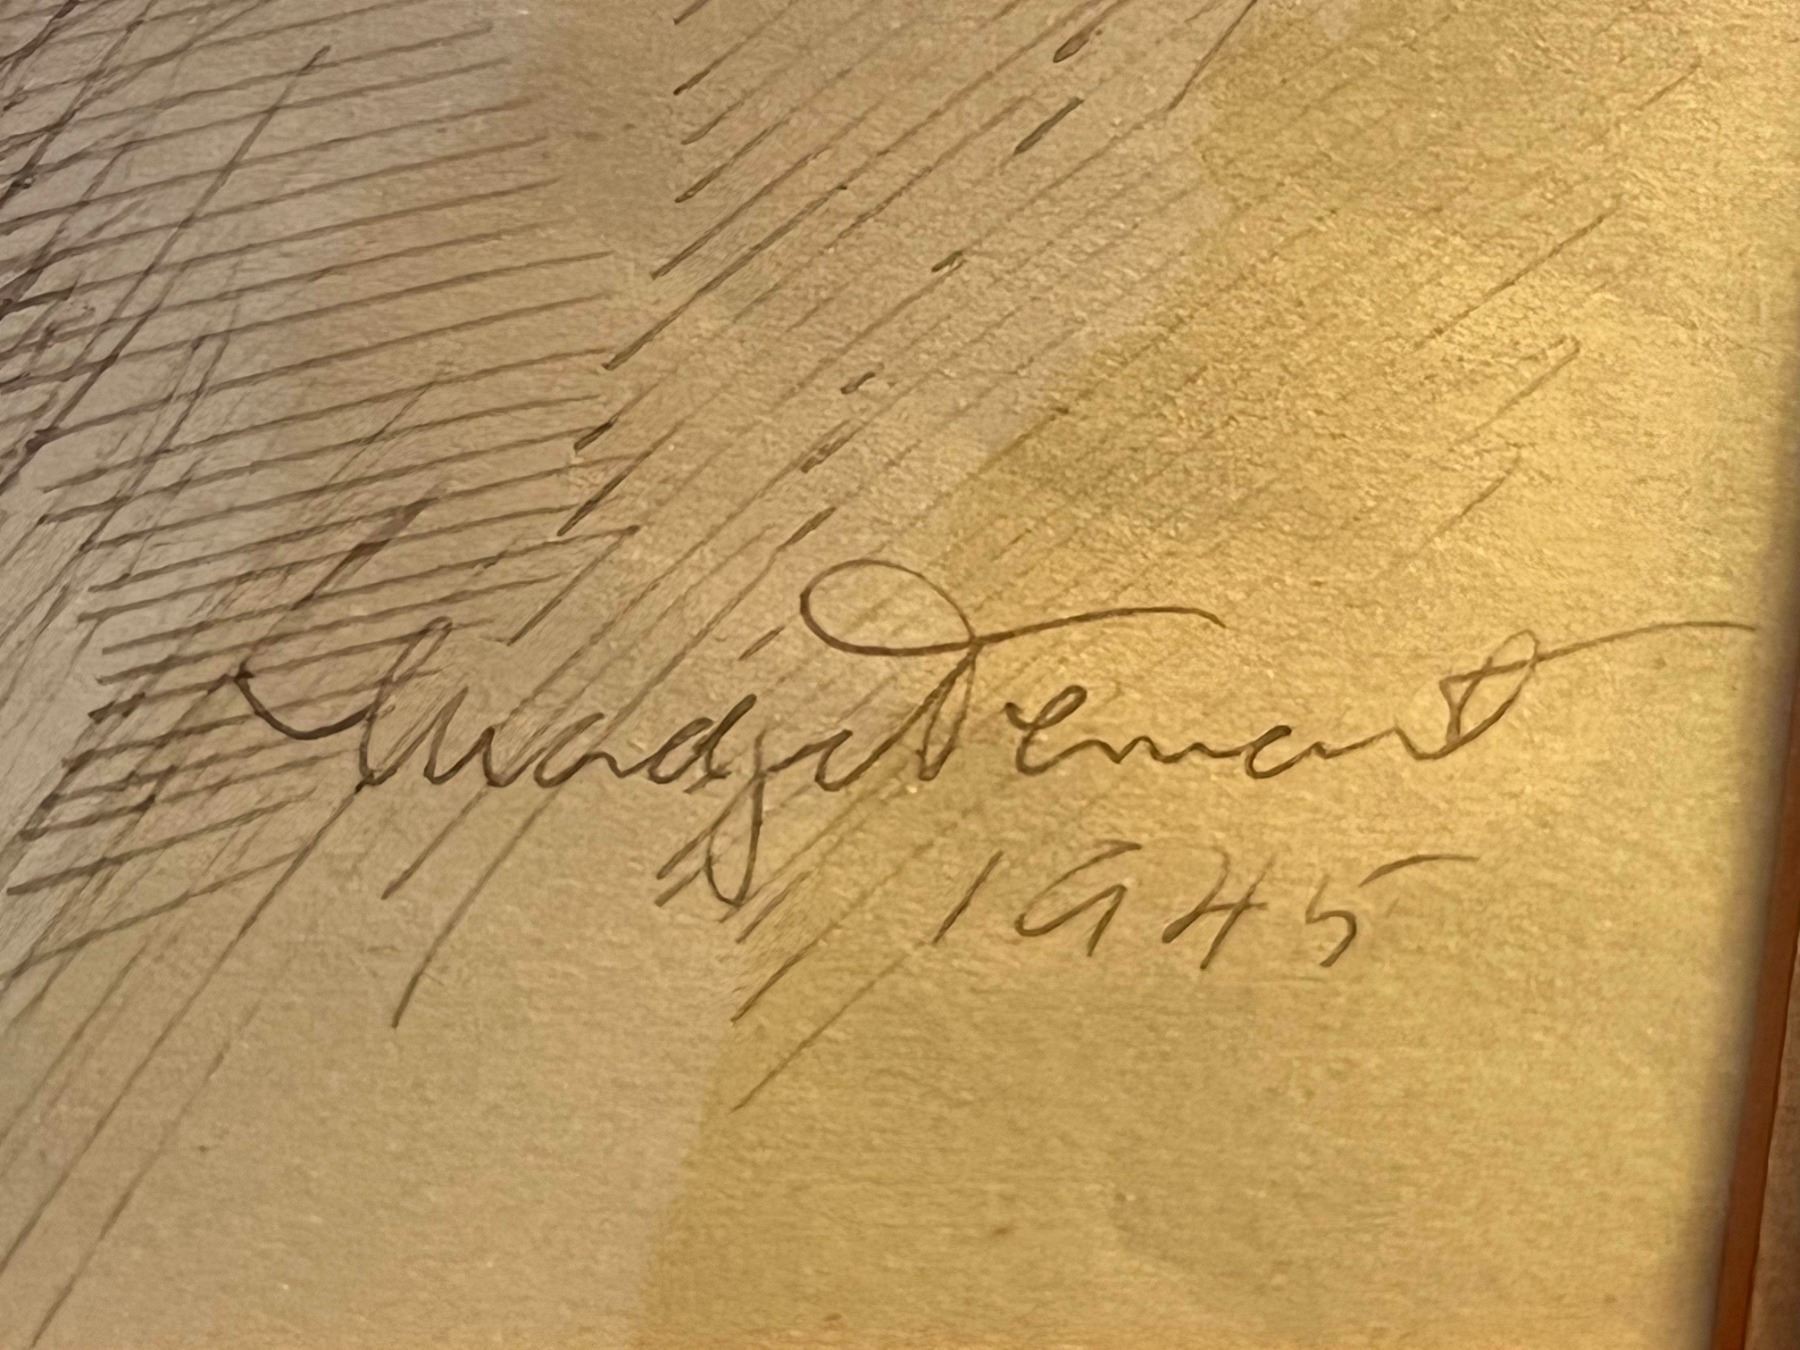 Madge Tennent
1945